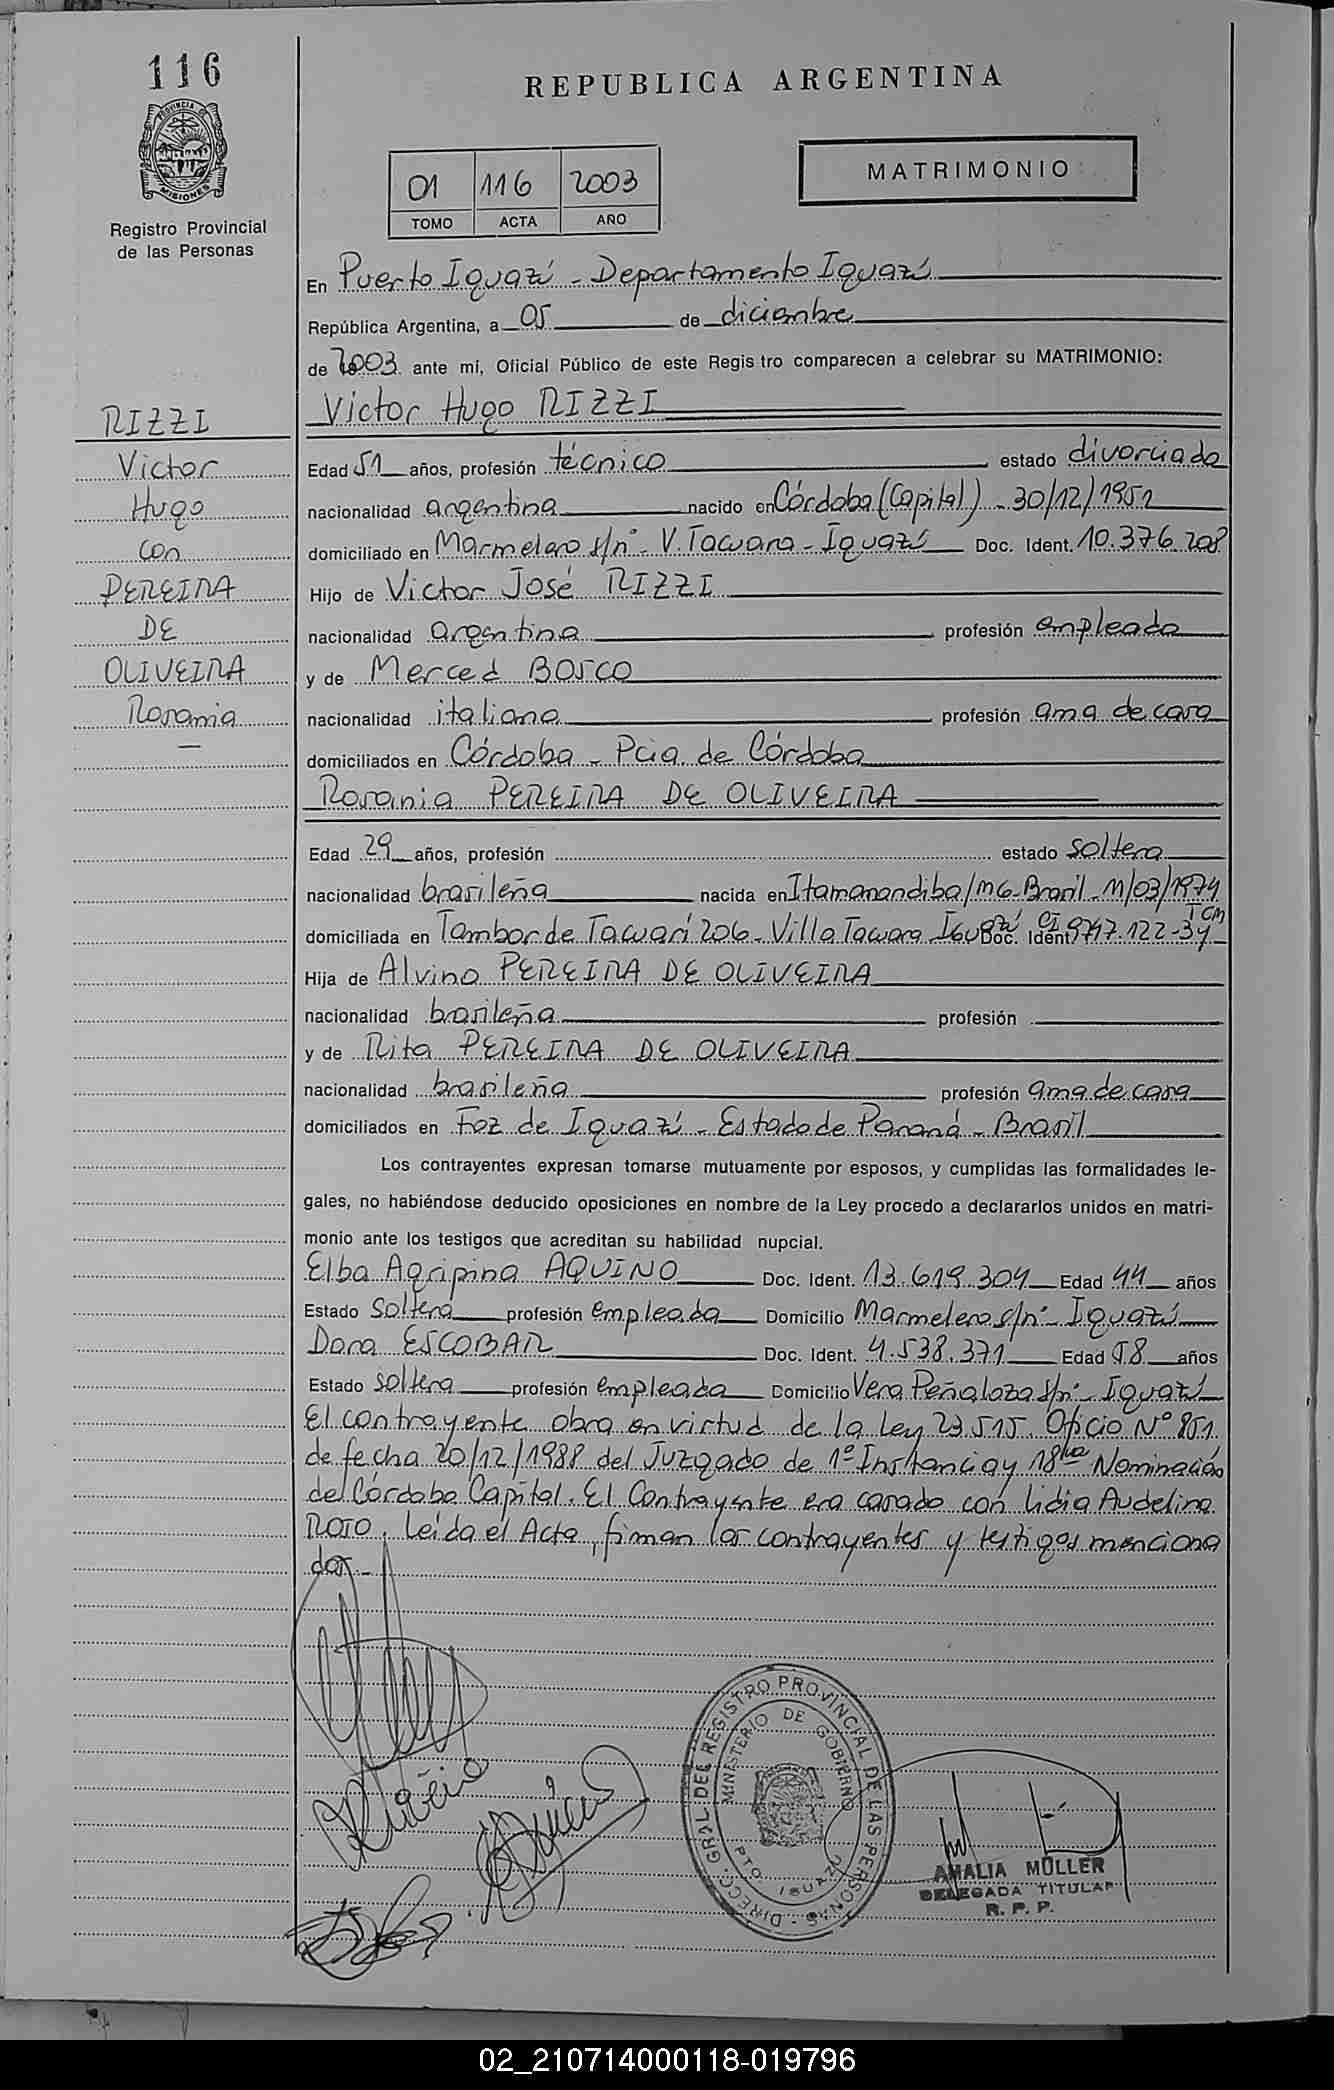 116
REPUBLICA ARGENTINA
PROVINCIA DE MISIONES
Registro Provincial
de las Personas
01 116 2003
TOMO ACTA AÑO
MATRIMONIO
En Puerto Iguazú - Departamento Iguazú
República Argentina, a 05 de diciembre
de 2003 ante mi, Oficial Público de este Regis tro comparecen a celebrar su MATRIMONIO:
RIZZI
Victor
Hugo
con
PEREIRA
DE
OLIVEIRA
Rosania
Victor Hugo RIZZI
Edad 51 años, profesión técnico estado divorciado
nacionalidad argentina nacido en Córdoba (Capital) - 30/12/1951
domiciliado en Marmelero s/nº - V. Tacuara - Iguazú Doc. Ident. 10.376.208
Hijo de Victor José RIZZI
nacionalidad argentina profesión empleado
y de Merced BOSCO
nacionalidad italiana profesión ama de casa
domiciliados en Córdoba - Pcia. de Córdoba
Rosania PEREIRA DE OLIVEIRA
Edad 29 años, profesión estado soltera
nacionalidad brasileña nacida en Itamarandiba/MG - Brasil - 11/03/1974
domiciliada en Tambor de Tacuarí 206 - Villa Tacuara Iguazú Doc. Ident. CI 9747.122-34 TCM
Hija de Alvino PEREIRA DE OLIVEIRA
nacionalidad brasileña profesión
y de Rita PEREIRA DE OLIVEIRA
nacionalidad brasileña profesión ama de casa
domiciliados en Foz de Iguazú - Estado de Paraná - Brasil
Los contrayentes expresan tomarse mutuamente por esposos, y cumplidas las formalidades le-
gales, no habiéndose deducido oposiciones en nombre de la Ley procedo a declararlos unidos en matri-
monio ante los testigos que acreditan su habilidad nupcial.
Elba Agripina AQUINO Doc. Ident. 13.619.304 Edad 44 años
Estado soltera profesión empleada Domicilio Marmelero s/nº - Iguazú
Dora ESCOBAR Doc. Ident. 4.538.371 Edad 58 años
Estado soltera profesión empleada Domicilio Vera Peñaloza s/nº - Iguazú
El contrayente obra en virtud de la Ley 23.515. Oficio Nº 851
de fecha 20/12/1988 del Juzgado de 1º Instancia y 18ba Nominación
de Córdoba Capital. El Contrayente era casado con Lidia Audelina
ROJO. Leída el Acta, firman los contrayentes y testigos menciona
dos.-
DIRECC. GRAL. DEL REGISTRO PROVINCIAL DE LAS PERSONAS
MINISTERIO DE GOBIERNO
PTO. IGUAZU
AMALIA MÜLLER
DELEGADA TITULAR
R. P. P.
02_210714000118-019796